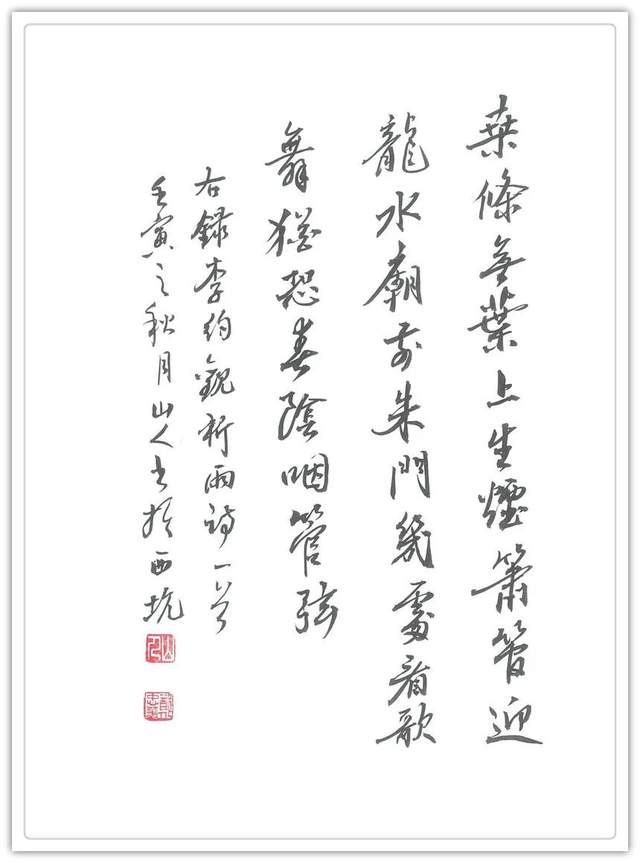 桑條無葉上生煙簫管迎
龍水廟前朱門幾處看歌
舞猶恐春陰咽管弦
右錄李約觀祈雨詩一首
壬寅之秋月山人書於西坑